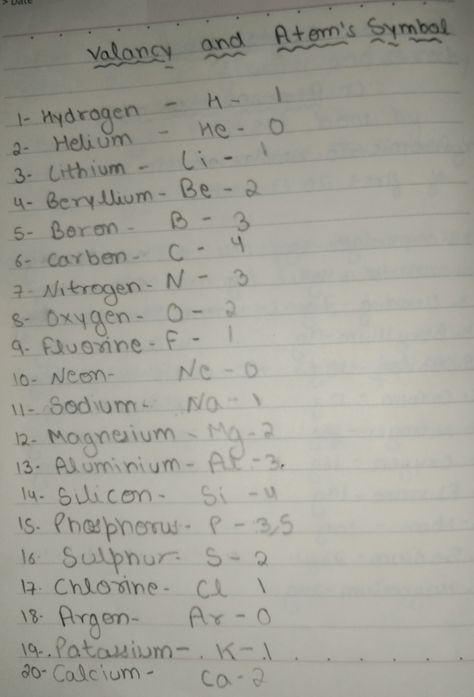 Valancy and Atom's Symbol
1- Hydrogen - H - 1
2- Helium - He - 0
3- Lithium - Li - 1
4- Beryllium - Be - 2
5- Boron - B - 3
6- Carbon - C - 4
7- Nitrogen - N - 3
8- Oxygen - O - 2
9- Fluorine - F - 1
10- Neon- Ne - 0
11- Sodium- Na - 1
12- Magnesium - Mg - 2
13- Aluminium - Al - 3.
14- Silicon- Si - 4
15- Phosphorus - P - 3,5
16- Sulphur- S - 2
17- Chlorine - Cl 1
18- Argon- Ar - 0
19-. Patassium - . K - 1
20- Calcium - Ca - 2